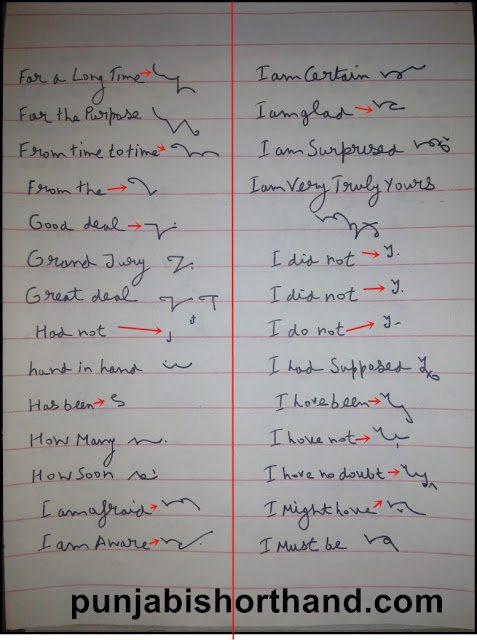 For a Long Time
For the Purpose
From time to time
From the
Good deal
Grand Jury
Great deal
Had not
hand in hand
Has been
How Many
How Soon
I am afraid
I am Aware
I am Certain
I am glad
I am Surprised
I am Very Truly Yours
I did not
I did not
I do not
I had Supposed
I have been
I have not
I have no doubt
I Might have
I Must be
punjabishorthand.com